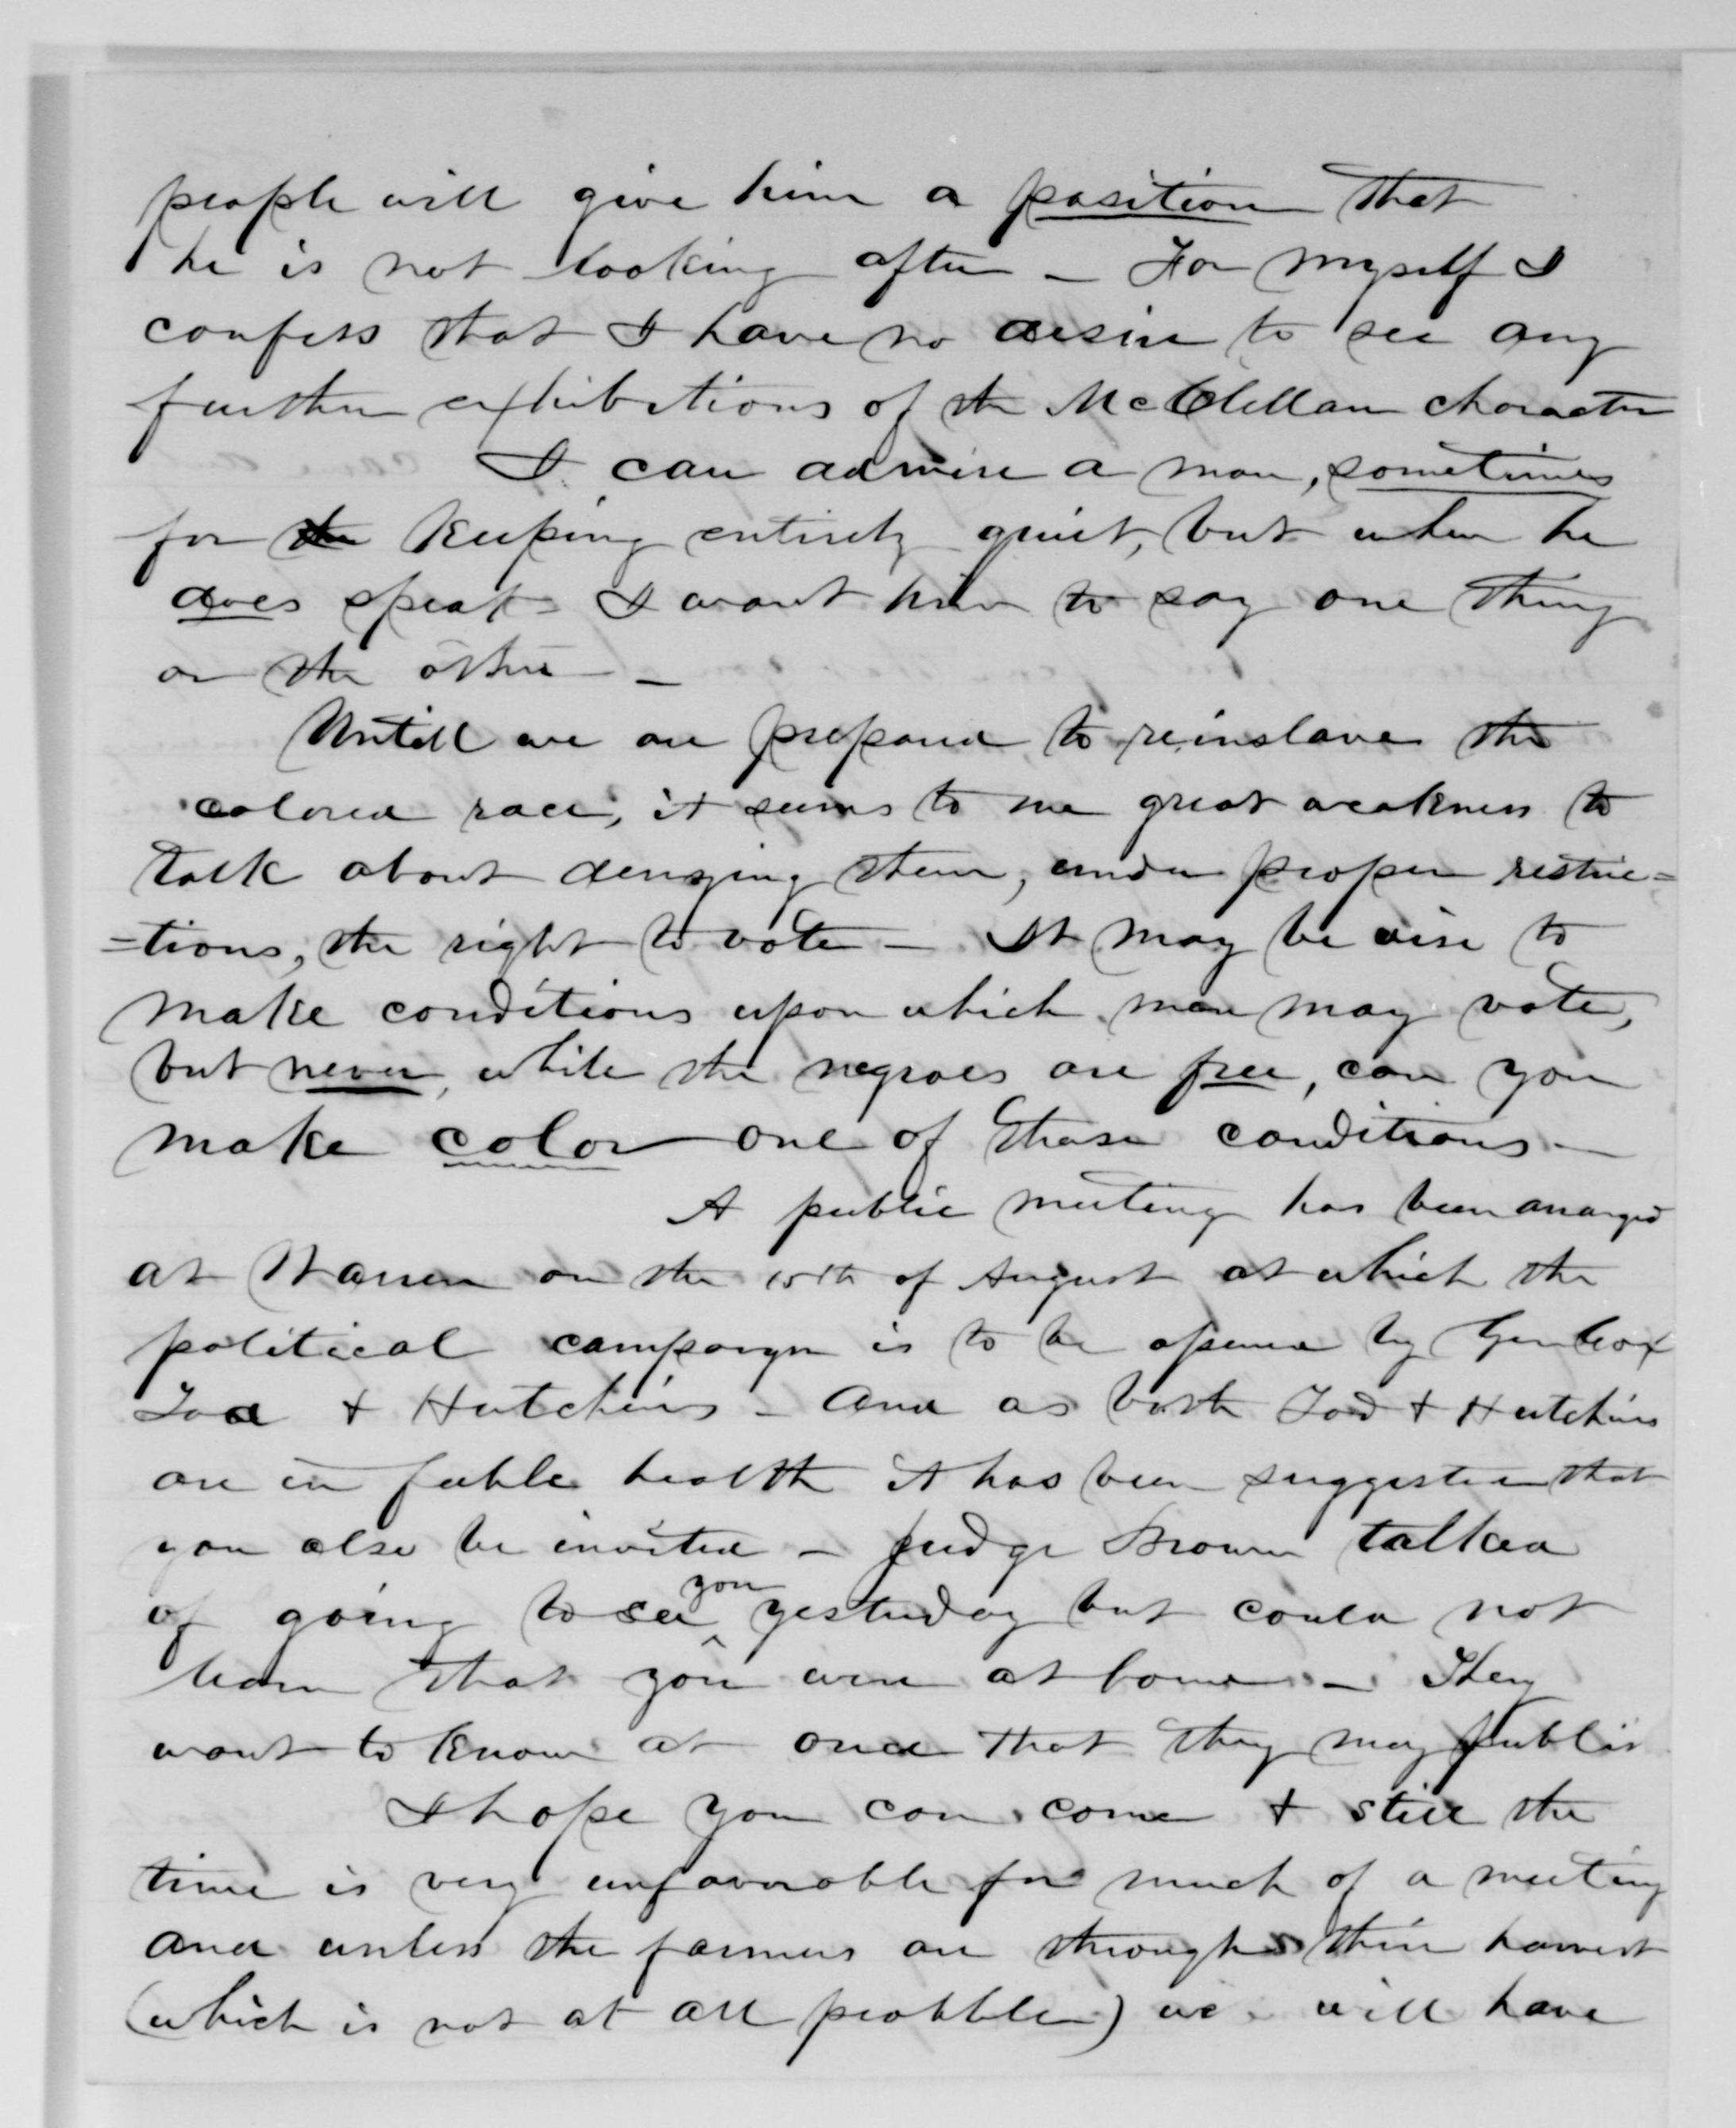 people will give him a position that
he is not looking after – For myself I
confess that I have no desire to see any
further exhibitions of the McClellan character
I can admire a man, sometimes
for the keeping entirely quiet, but when he
does speak I want him to say one thing
or the other –
Untill we are prepared to reinslave the
colored race, it seems to me great weakness to
talk about denying them, under proper restric=
=tions, the right to vote – It may be wise to
make conditions upon which men may vote,
but never, while the negroes are free, can you
make color one of those conditions –
A public meeting has been arranged
at Warren on the 15th of August at which the
political campaign is to be opened by Gen Cox
Tod & Hutchins – And as both Tod & Hutchins
are in feeble health it has been suggested that
you also be invited – Judge Brown talked
of going to see you yesterday but could not
learn that you were at home – They
want to know at once that they may publish
I hope you can come & still the
time is very unfavorable for much of a meeting
and unless the farmers are through their harvest
(which is not at all probble) we will have